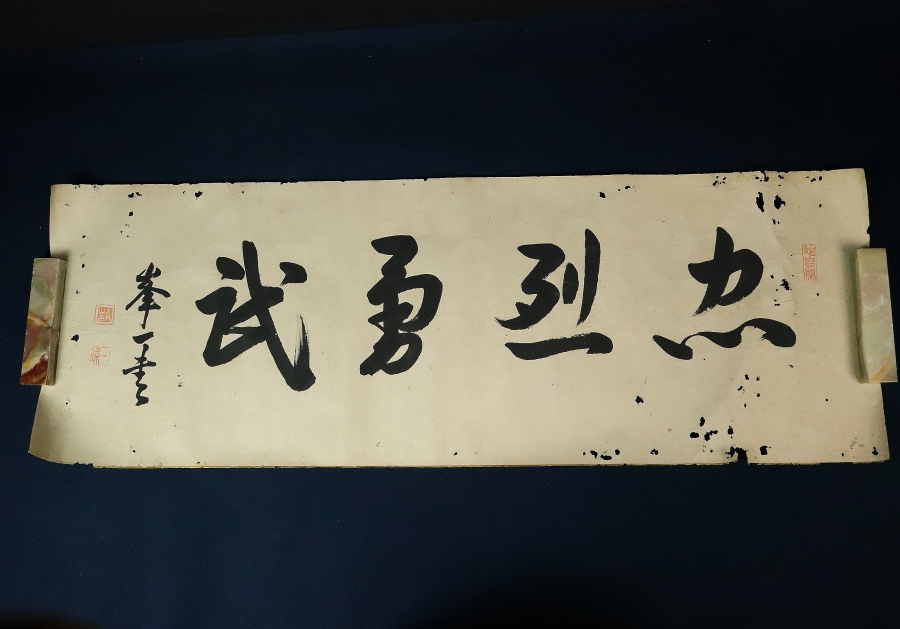 忠烈勇武
峯一書